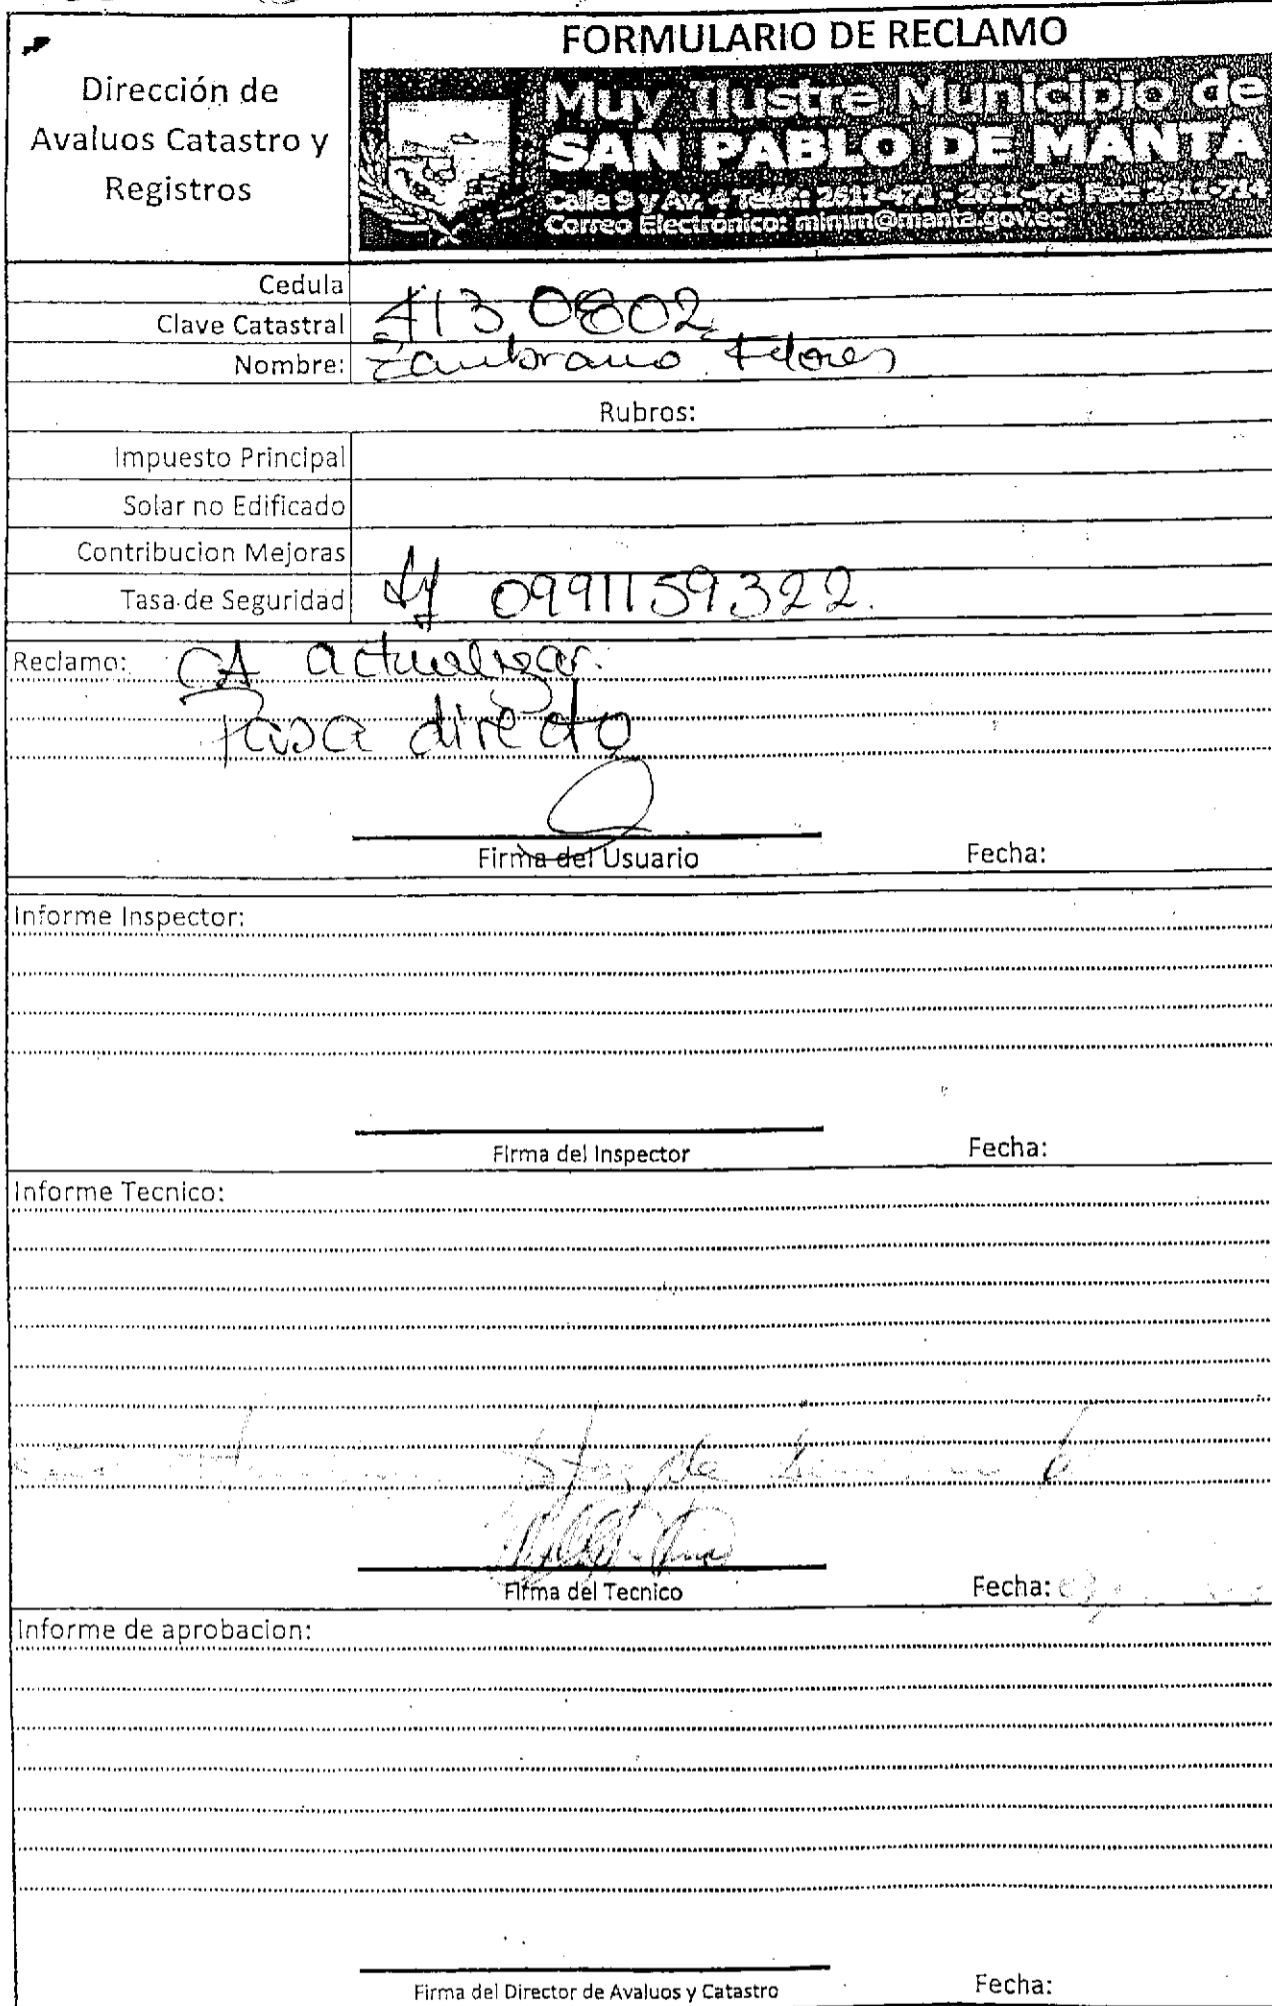 FORMULARIO DE RECLAMO
Dirección de
Avaluos Catastro y
Registros
Muy Ilustre Municipio de
SAN PABLO DE MANTA
Calle 9 y Av. 4 Telf.: 2611-471 - 2611-479 Fax: 2611-714
Correo Electrónico: mimm@manta.gov.ec
Cedula
Clave Catastral 4130802
Nombre: Zambrano Flores
Rubros:
Impuesto Principal
Solar no Edificado
Contribucion Mejoras
Tasa de Seguridad 0991159322.
Reclamo: CA actualizar.
Pasa directo
Firma del Usuario Fecha:
Informe Inspector:
Firma del Inspector Fecha:
Informe Tecnico:
Firma del Tecnico Fecha:
Informe de aprobacion:
Firma del Director de Avaluos y Catastro Fecha: